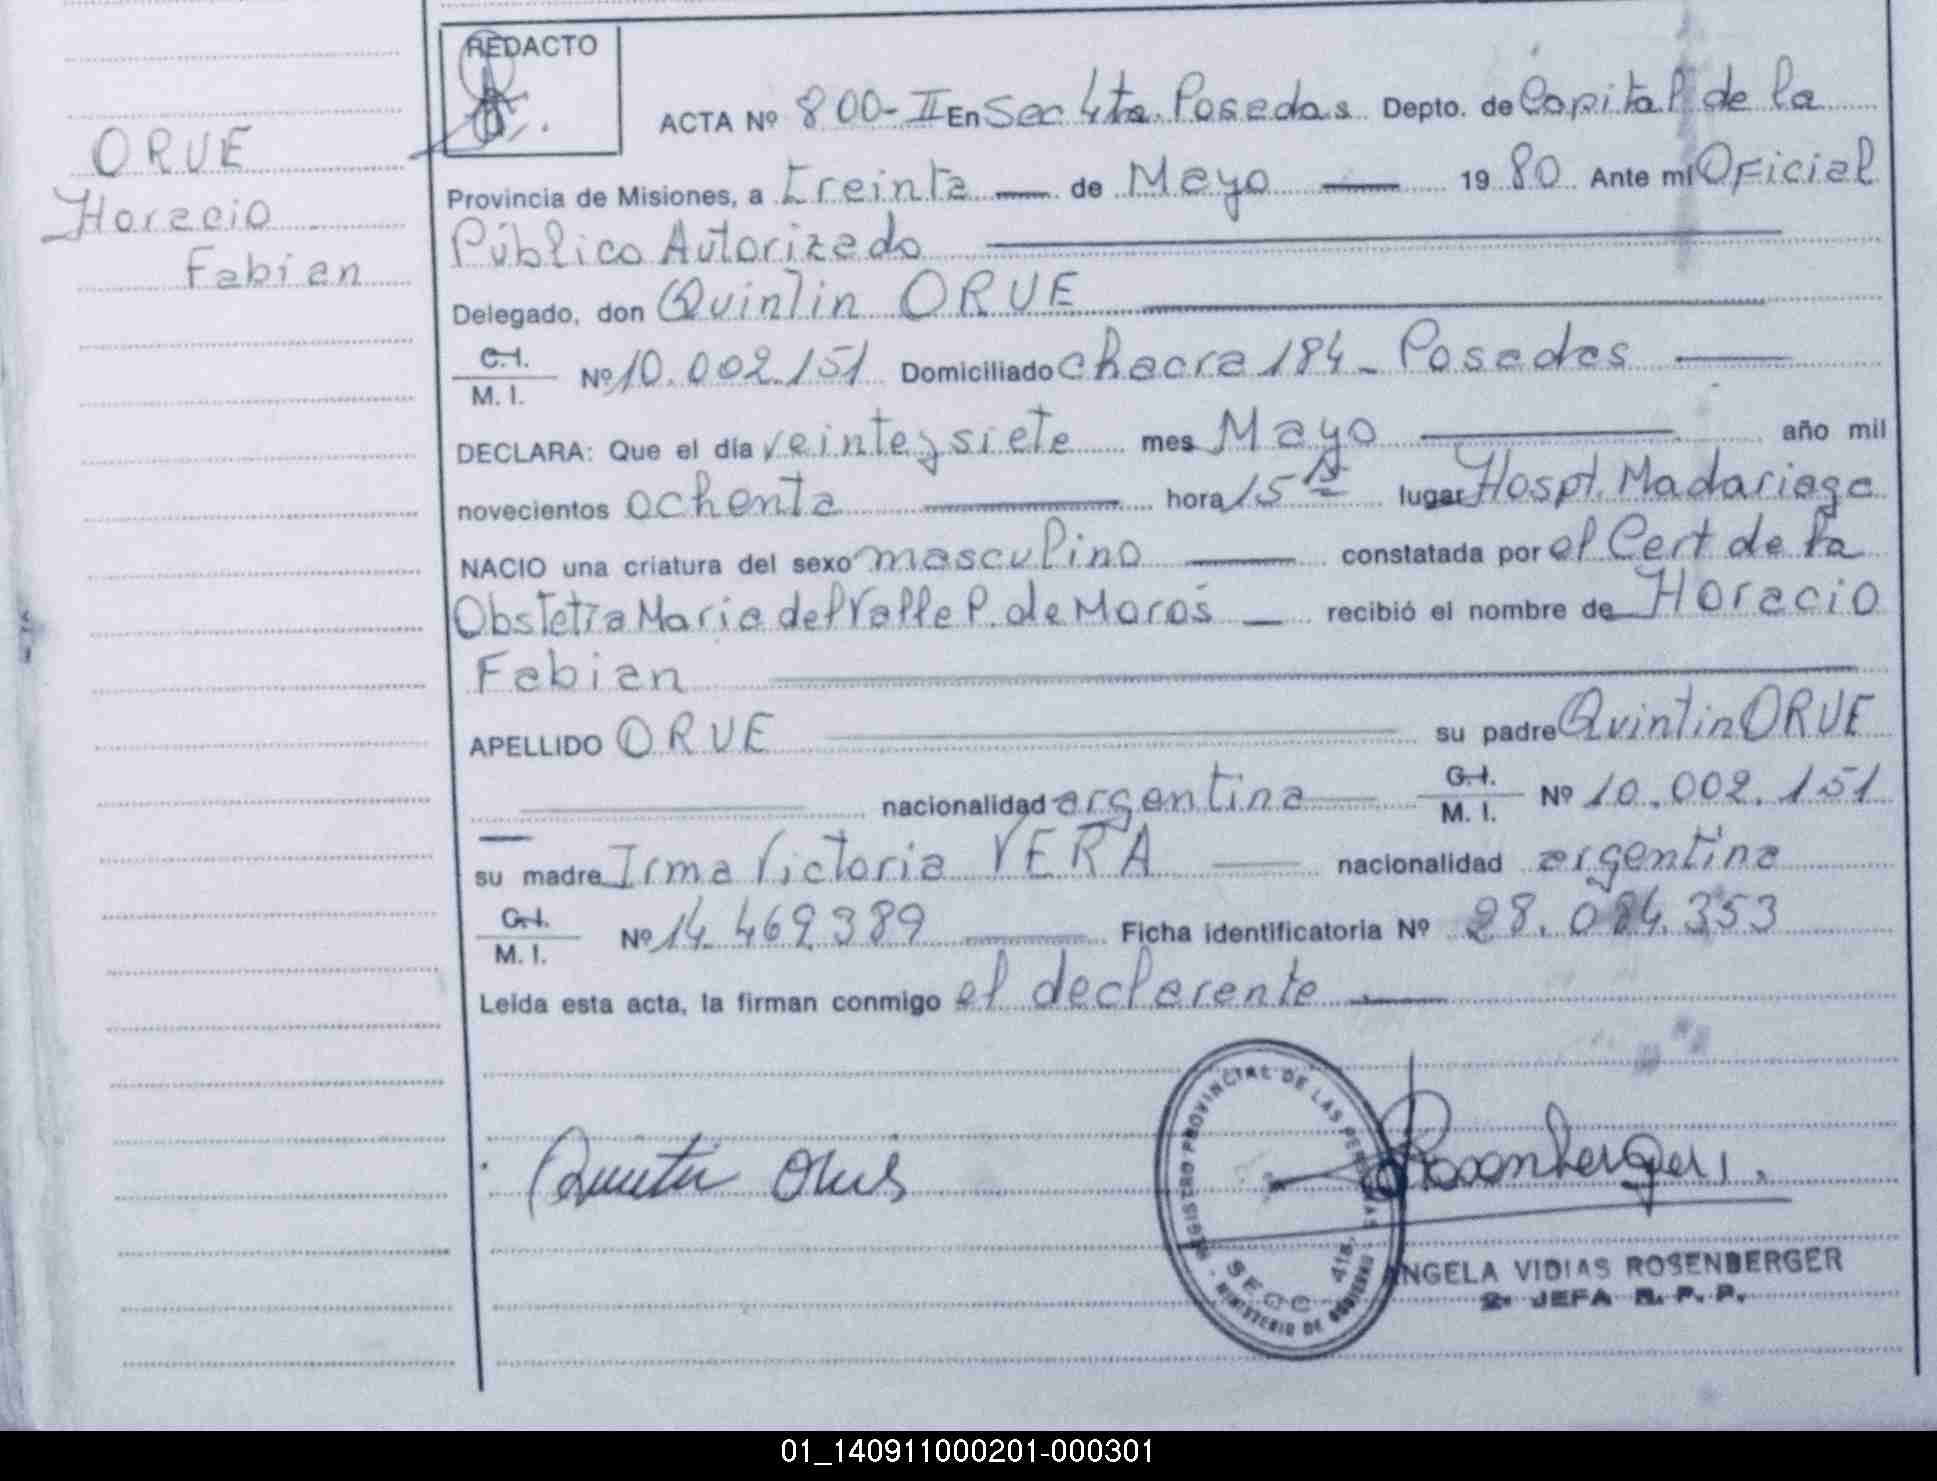 REDACTO
ORVE
Horacio
Fabian
ACTA Nº 800-II En Sec 4ta. Posadas Depto. de Capital de la
Provincia de Misiones, a treinta — de Mayo — 1980 Ante mí Oficial
Público Autorizado
Delegado, don Quintin ORVE
C.I. M. I. Nº 10.002.151 Domiciliado chacra 184 - Posadas
DECLARA: Que el día veinte y siete mes Mayo año mil
novecientos ochenta hora 15 15 lugar Hospt. Madariaga
NACIO una criatura del sexo masculino constatada por el Cert de la
Obstetra Maria del Valle P. de Moros — recibió el nombre de Horacio
Fabian
APELLIDO ORVE su padre Quintin ORVE
nacionalidad argentina C.I. M. I. Nº 10.002.151
su madre Irma Victoria VERA nacionalidad argentina
C.I. M. I. Nº 14.469.389 Ficha identificatoria Nº 28.084.353
Leída esta acta, la firman conmigo el declarente
Quintin
Rosenberger
REGISTRO PROVINCIAL DE LAS PERSONAS
SECC. 4ta.
MINISTERIO DE GOBIERNO
ANGELA VIDIAS ROSENBERGER
2º JEFA R. P. P.
01_140911000201-000301